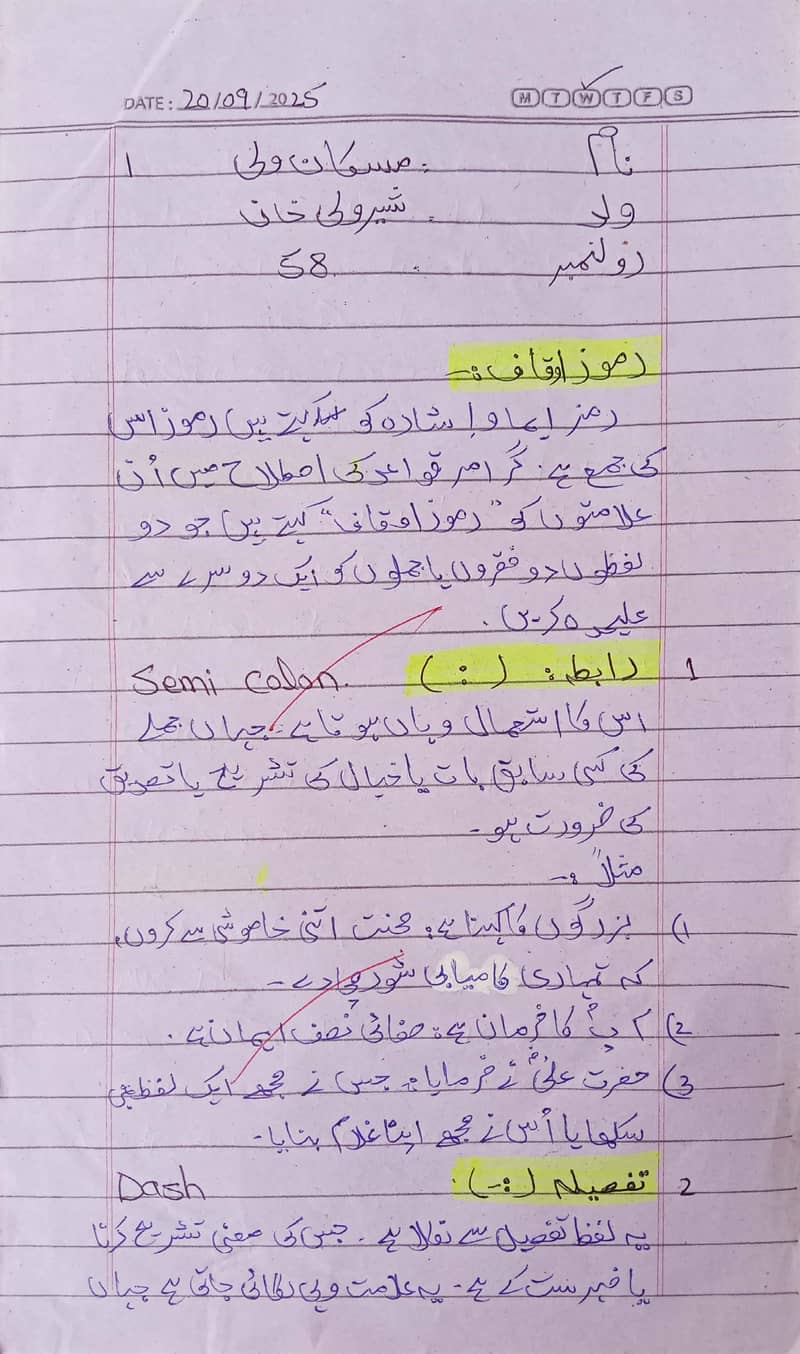 DATE: 20/09/2025 M T W T F S
نام : مسکان ولی 1
ولد : شیر ولی خان
رولنمبر : 58
رموز اوقاف :-
رمز ایما و اشارہ کو کہتے ہیں رموز اس
کی جمع ہے. گرامر قواعد کی اصطلاح میں اُن
علامتوں کو "رموز اوقاف" کہتے ہیں جو دو
لفظوں دو فقروں یا جملوں کو ایک دوسرے سے
علیحدہ کریں.
1 رابطہ: (:) Semi Colon.
اس کا استعمال وہاں ہوتا ہے. جہاں جملے
کی کسی سابق بات یا خیال کی تشریح یا تصدیق
کی ضرورت ہو-
مثلاً :-
1) بزرگوں کا کہنا ہے: محنت اتنی خاموشی سے کروں,
کہ تمہاری کامیابی شور مچا دے-
2) آپؐ کا فرمان ہے: صفائی نصف ایمان ہے.
3) حضرت علیؓ نے فرمایا: جس نے مجھے ایک لفظ بھی
سکھایا اُس نے مجھے اپنا غلام بنایا-
2 تفصیلہ (:-). Dash
یہ لفظ تفصیل سے نکلا ہے. جس کی معنی تشریح کرنا
یا فہرست کے ہے- یہ علامت وہی لگائی جاتی ہے جہاں